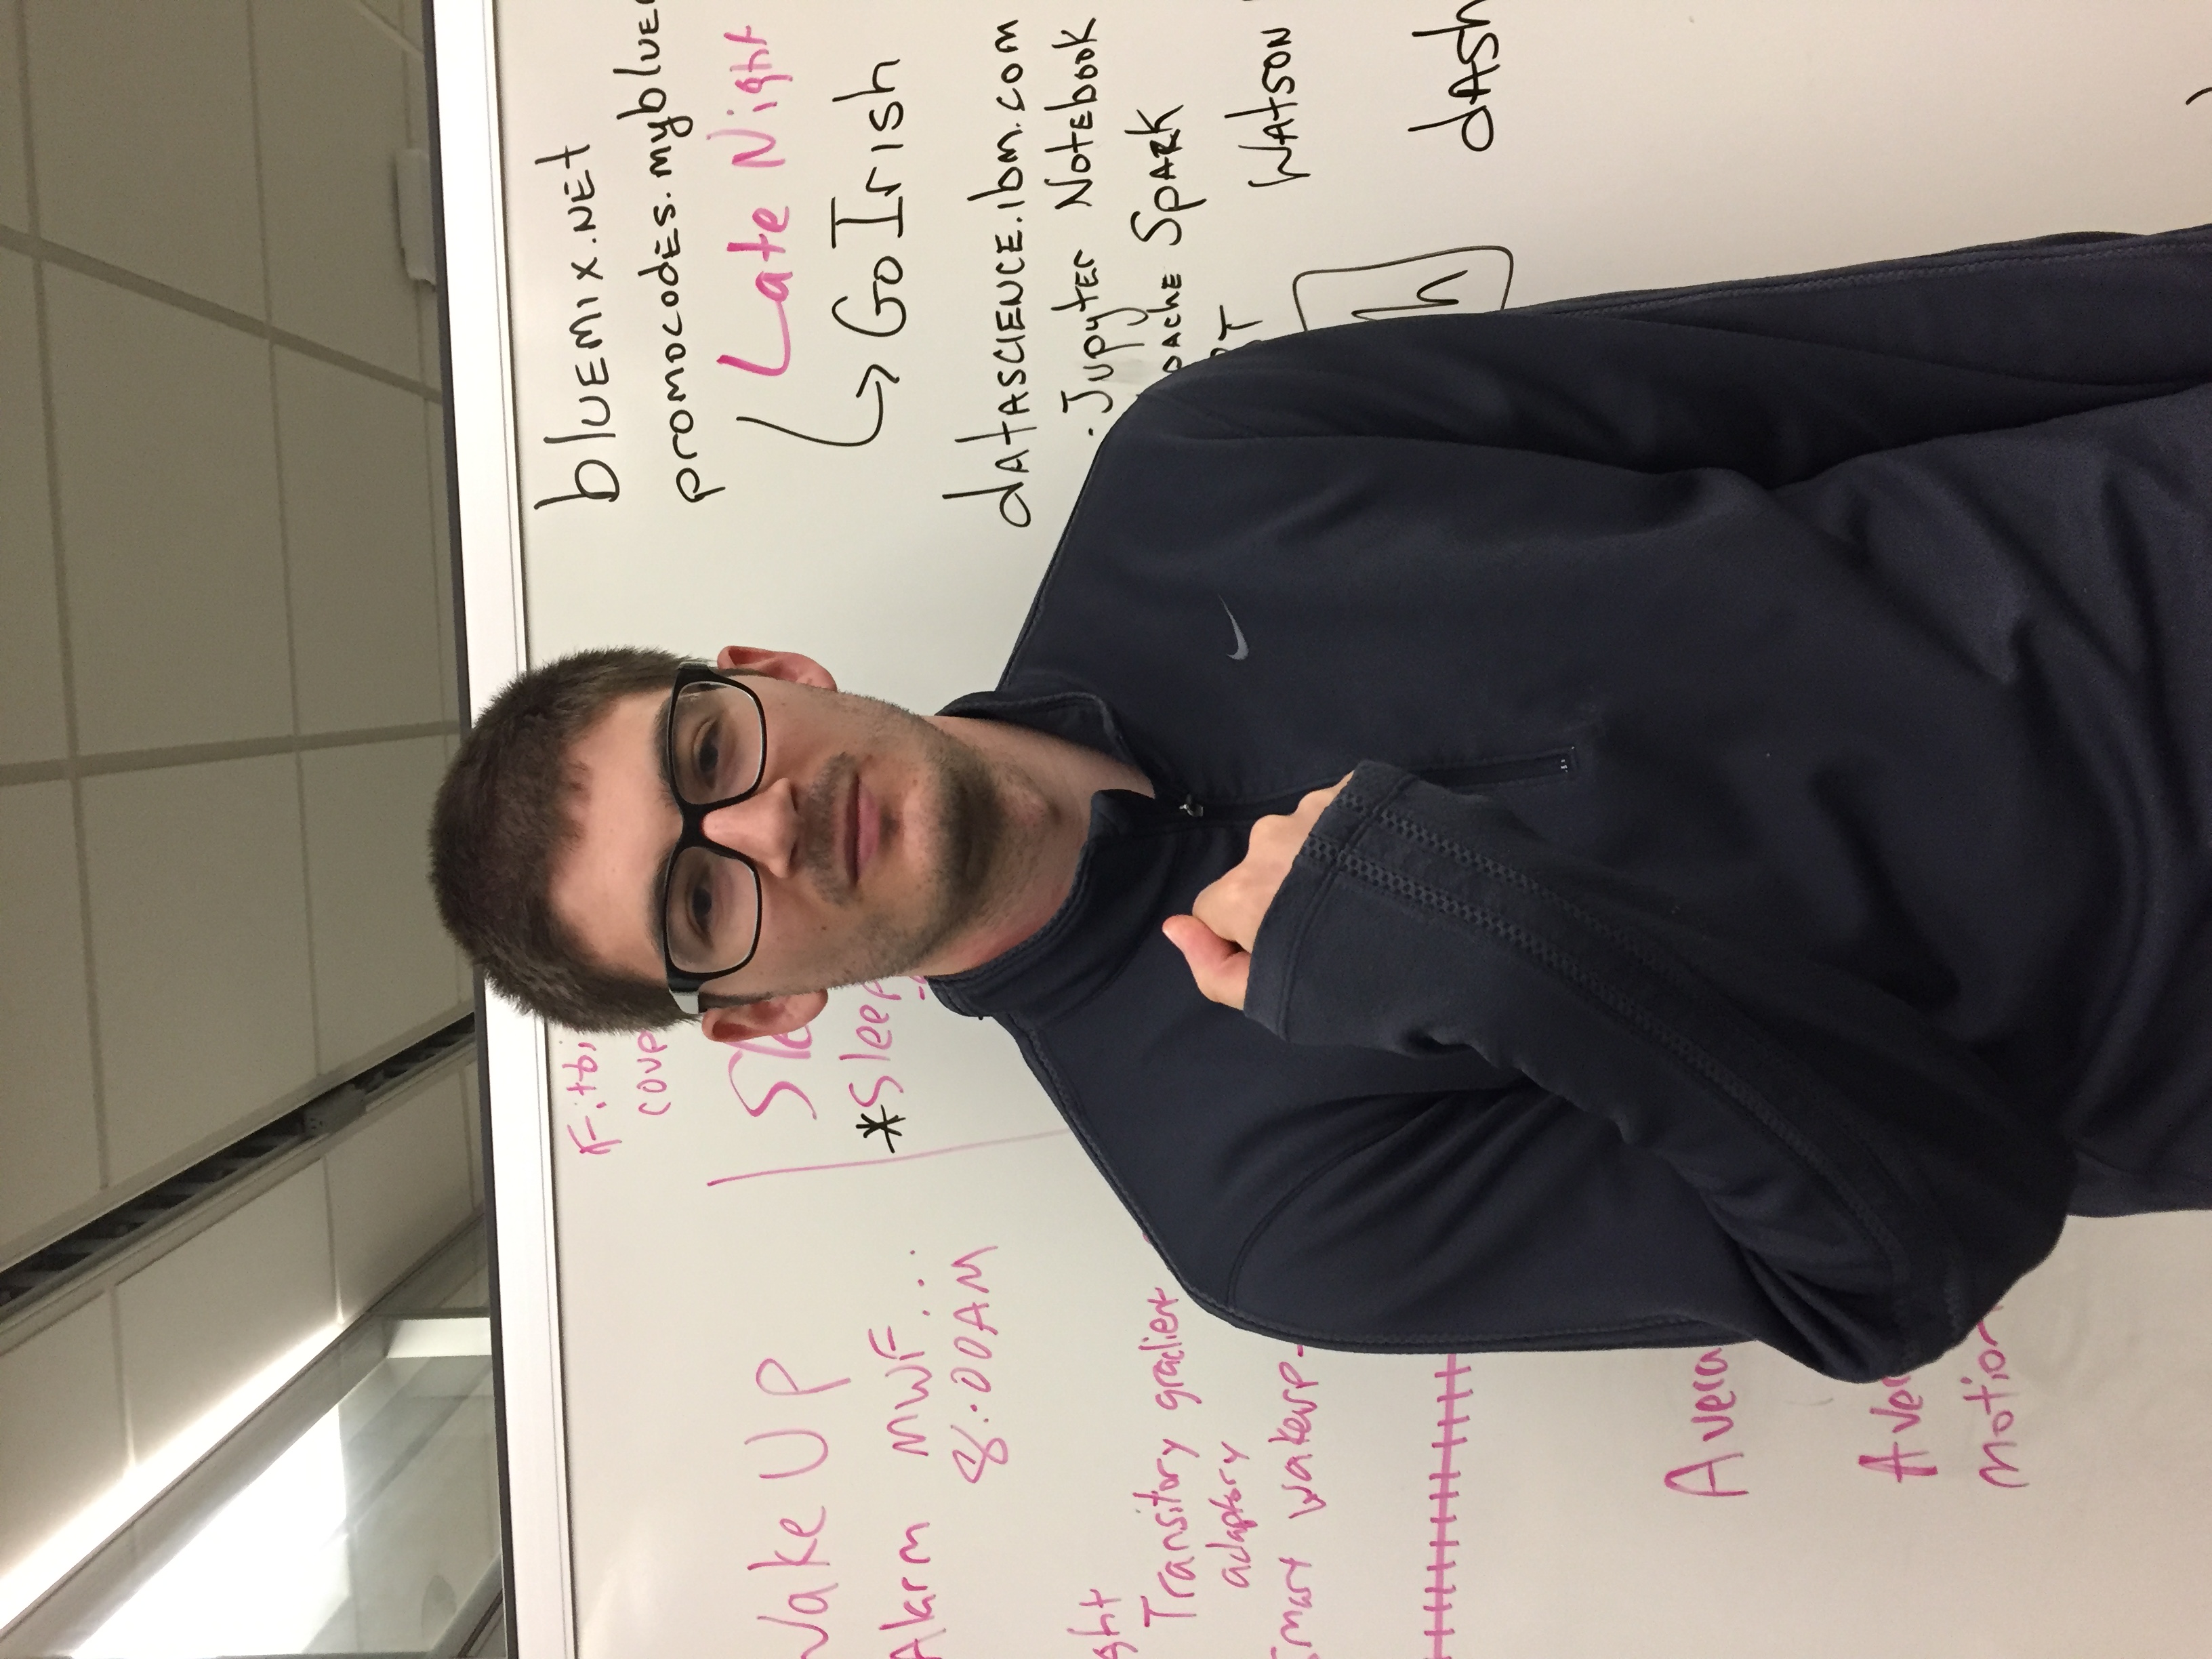 Wake Up
Alarm MWF...
8:00AM
Transitory gradient
adaptory
Smart wakeup-
motion
*Sleep
bluemix.NET
promocodes.myblue
Late Night
Go Irish
datascience.ibm.com
· Jupyter Notebook
Spark
Watson
dash